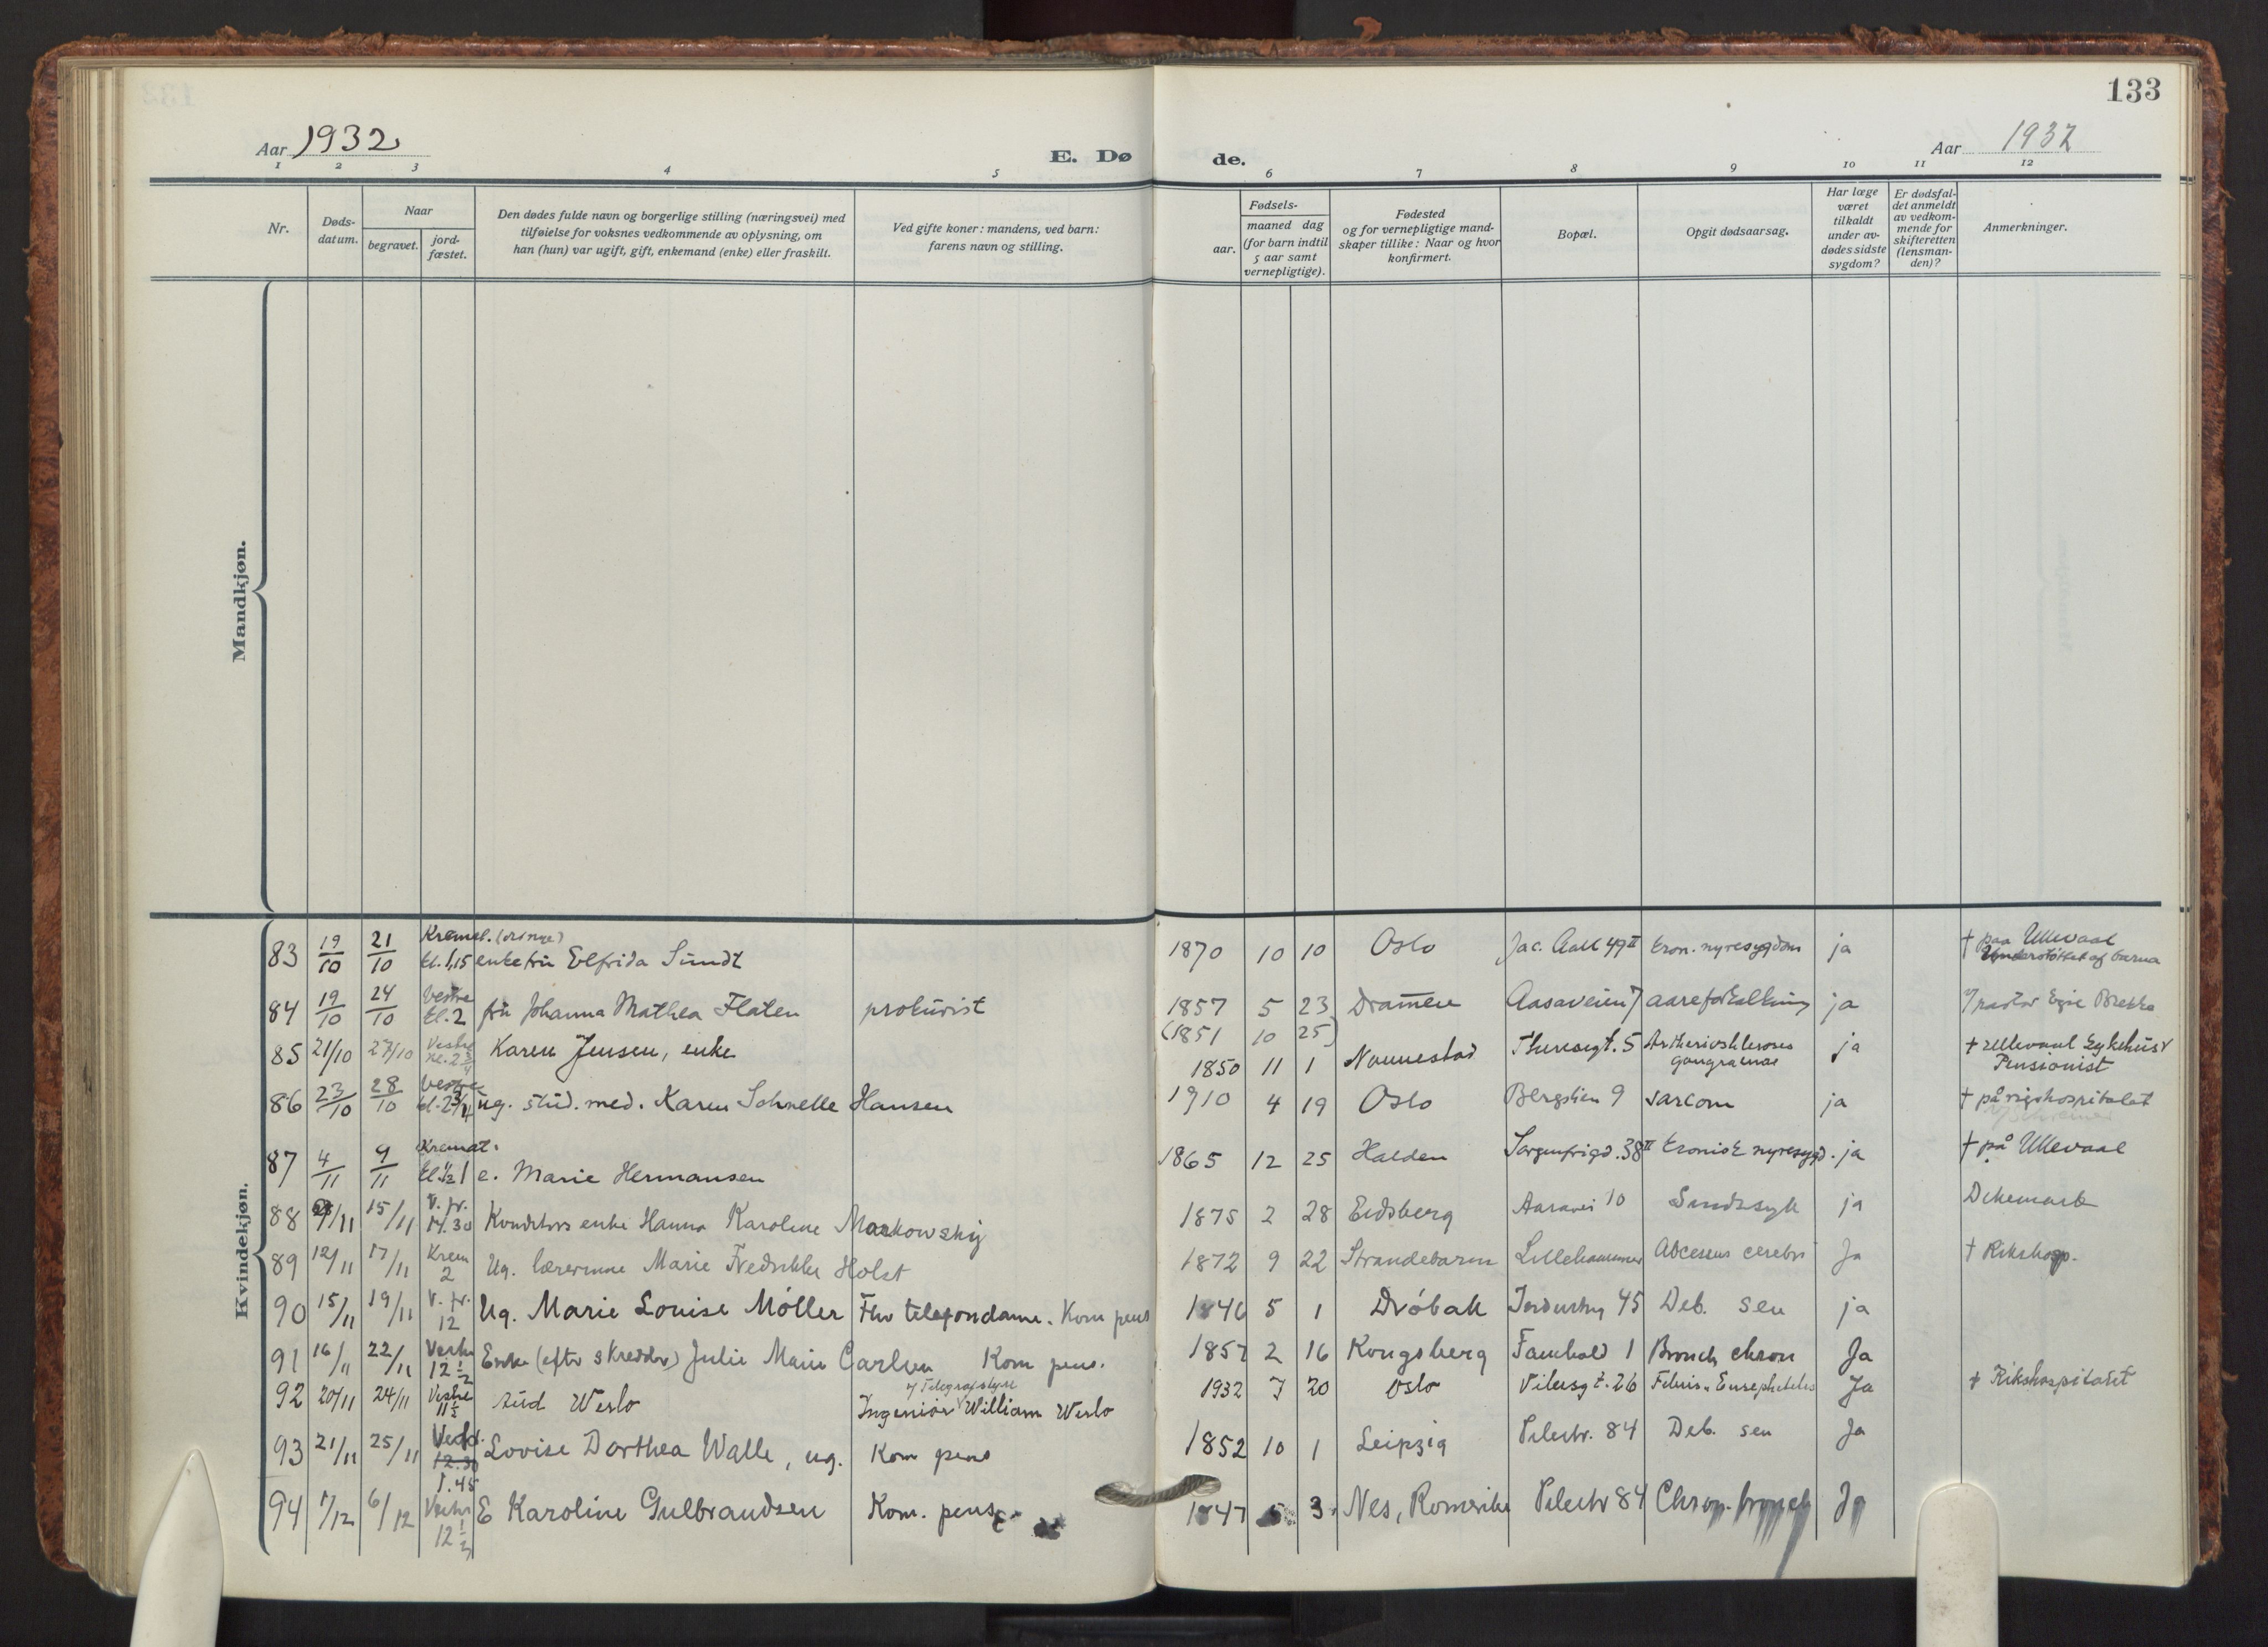 133
Aar 1932 E. Dø de. Aar 1932
1 2 3 4 5 6 7 8 9 10 11 12
Nr.
Døds-
datum.
Naar
begravet.
jord-
fæstet.
Den dødes fulde navn og borgerlige stilling (næringsvei) med
tilføielse for voksnes vedkommende av oplysning, om
han (hun) var ugift, gift, enkemand (enke) eller fraskilt.
Ved gifte koner: mandens, ved barn:
farens navn og stilling.
Fødsels-
aar.
maaned dag
(for barn indtil
5 aar samt
vernepligtige).
Fødested
og for vernepligtige mand-
skaper tillike: Naar og hvor
konfirmert.
Bopæl.
Opgit dødsaarsag.
Har læge
været
tilkaldt
under av-
dødes sidste
sygdom?
Er dødsfal-
det anmeldt
av vedkom-
mende for
skifteretten
(lensman-
den)?
Anmerkninger.
Mandkjøn.
Kvindekjøn.
83 19/10 21/10 Kremat. kl. 1,15 enkefru Elfrida Sundt 1870 10 10 Oslo Jac. Aall 49 II kron. nyresygdom ja † paa Ullevaal
Understöttet af barna
84 19/10 24/10 Vestre kl. 2 fru Johanna Mathea Flaten prokurist 1857 5 23 Drammen Aasaveien 7 aareforkalkning ja
(1851 10 25)
85 21/10 27/10 Vestre kl. 2 3/4 Karen Jensen, enke 1850 11 1 Nannestad Theresegt. 5 gangraenae ja † Ullevaal Sykehus
Pensionist
86 23/10 28/10 Vestre kl. 2 3/4 ug. stud. med. Karen Schnelle Hansen 1910 4 19 Oslo Bergslien 9 sarcom ja † på rigshospitalet
87 4/11 9/11 Kremat. kl. 1/2 1 e. Marie Hermansen 1865 12 25 Halden Sorgenfrigd. 38 II kronisk nyresygd. ja † på Ullevaal
88 9/11 15/11 V. gr. 14.30 Konditors enke Hanna Karoline Markowsky 1875 2 28 Eidsberg Aasavei 10 Sindssyk ja Dikemark
89 12/11 17/11 Krem 2 Ug. lærerinne Marie Fredrikke Holst 1872 9 22 Strandebarm Lillehammer Abcessus cerebri Ja † Rikshosp.
90 15/11 19/11 V. gr. 12 Ug. Marie Louise Möller Fhv telefondame. Kom pens 1846 5 1 Dröbak Industrig 45 Deb. sen ja
91 16/11 22/11 Vestre 12 1/2 Enke (eftr skredder) Julie Marie Carlsen Kom pens. 1857 2 16 Kongsberg Fauchald 1 Bronch chron Ja
92 20/11 24/11 Vestre 11 1/2 Aud Weslo Ingeniør William Weslo 1932 7 20 Oslo Vibesgt. 26 Ja † Rikshospitalet
i Telegrafstyre
93 21/11 25/11 Vestr. 12.30 1.45 Lovise Dorthea Walle, ug. Kom pens 1852 10 1 Leipzig Pilestr. 84 Deb. sen Ja
94 1/12 6/12 Vestre 12 1/2 E Karoline Gulbrandsen Kom. pens. 1847 5 3 Nes, Romerike Pilestr 84 Chron. bronch Ja